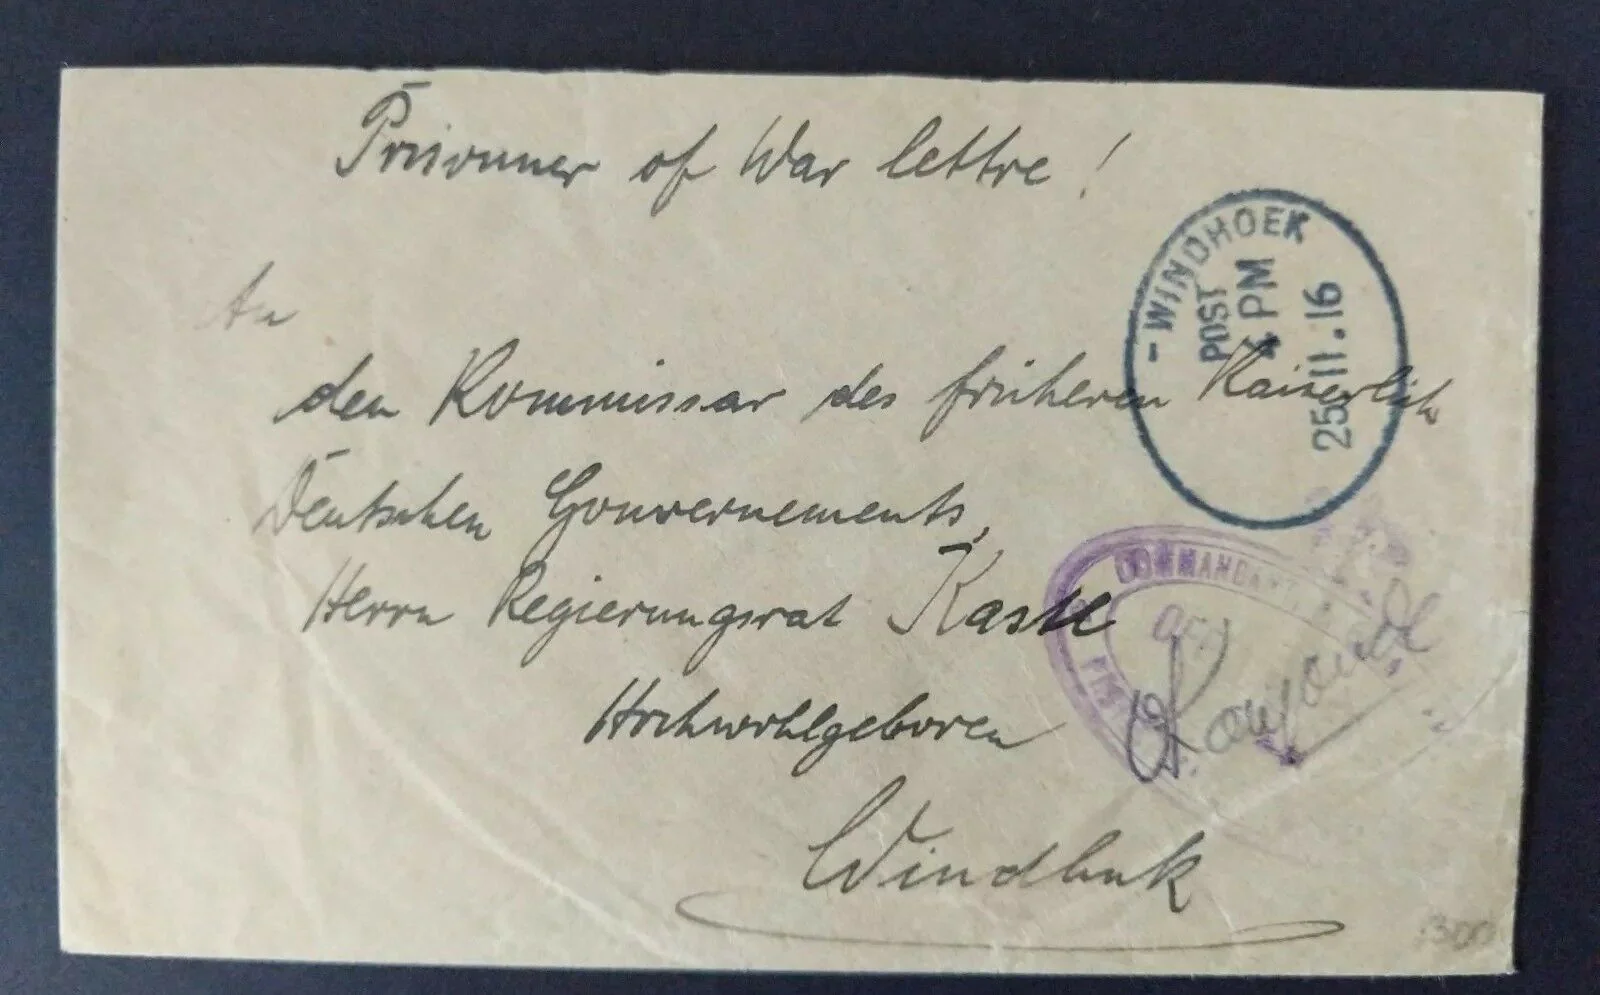 Prisonner of War lettre!
An
den Kommissar des früheren Kaiserlich
Deutschen Gouvernements,
Herrn Regierungsrat Kastl
Hochwohlgeboren
Windhuk
- WINDHOEK
POST
4 PM
25.11.16
COMMANDANT
300